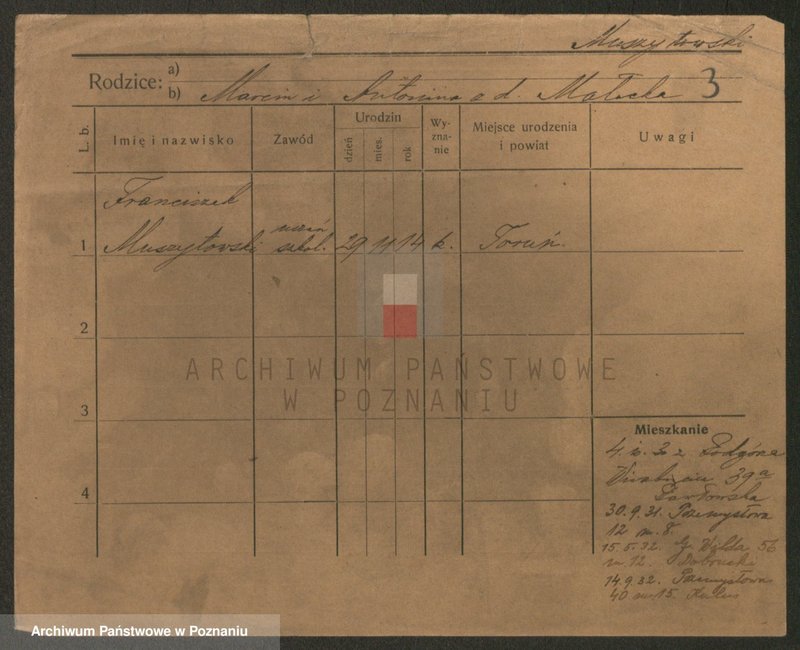 Muszytowski
Rodzice: a)
b) Marcin i Antonina o d. Małecka 3
L. b.
Imię i nazwisko
Zawód
Urodzin
dzień
mies.
rok
Wy-
zna-
nie
Miejsce urodzenia
i powiat
Uwagi
Franciszek
1 Muszytowski uczeń szkol. 29 11 14 k. Toruń
2
3
4
ARCHIWUM PAŃSTWOWE
W POZNANIU
Mieszkanie
Podgórna
39a
30.9.31. Przemysłowa
12 m. 8.
15.5.32. G. Wilda 56
m 12.
14.9.32. Przemysłowa
40 m 15.
Archiwum Państwowe w Poznaniu